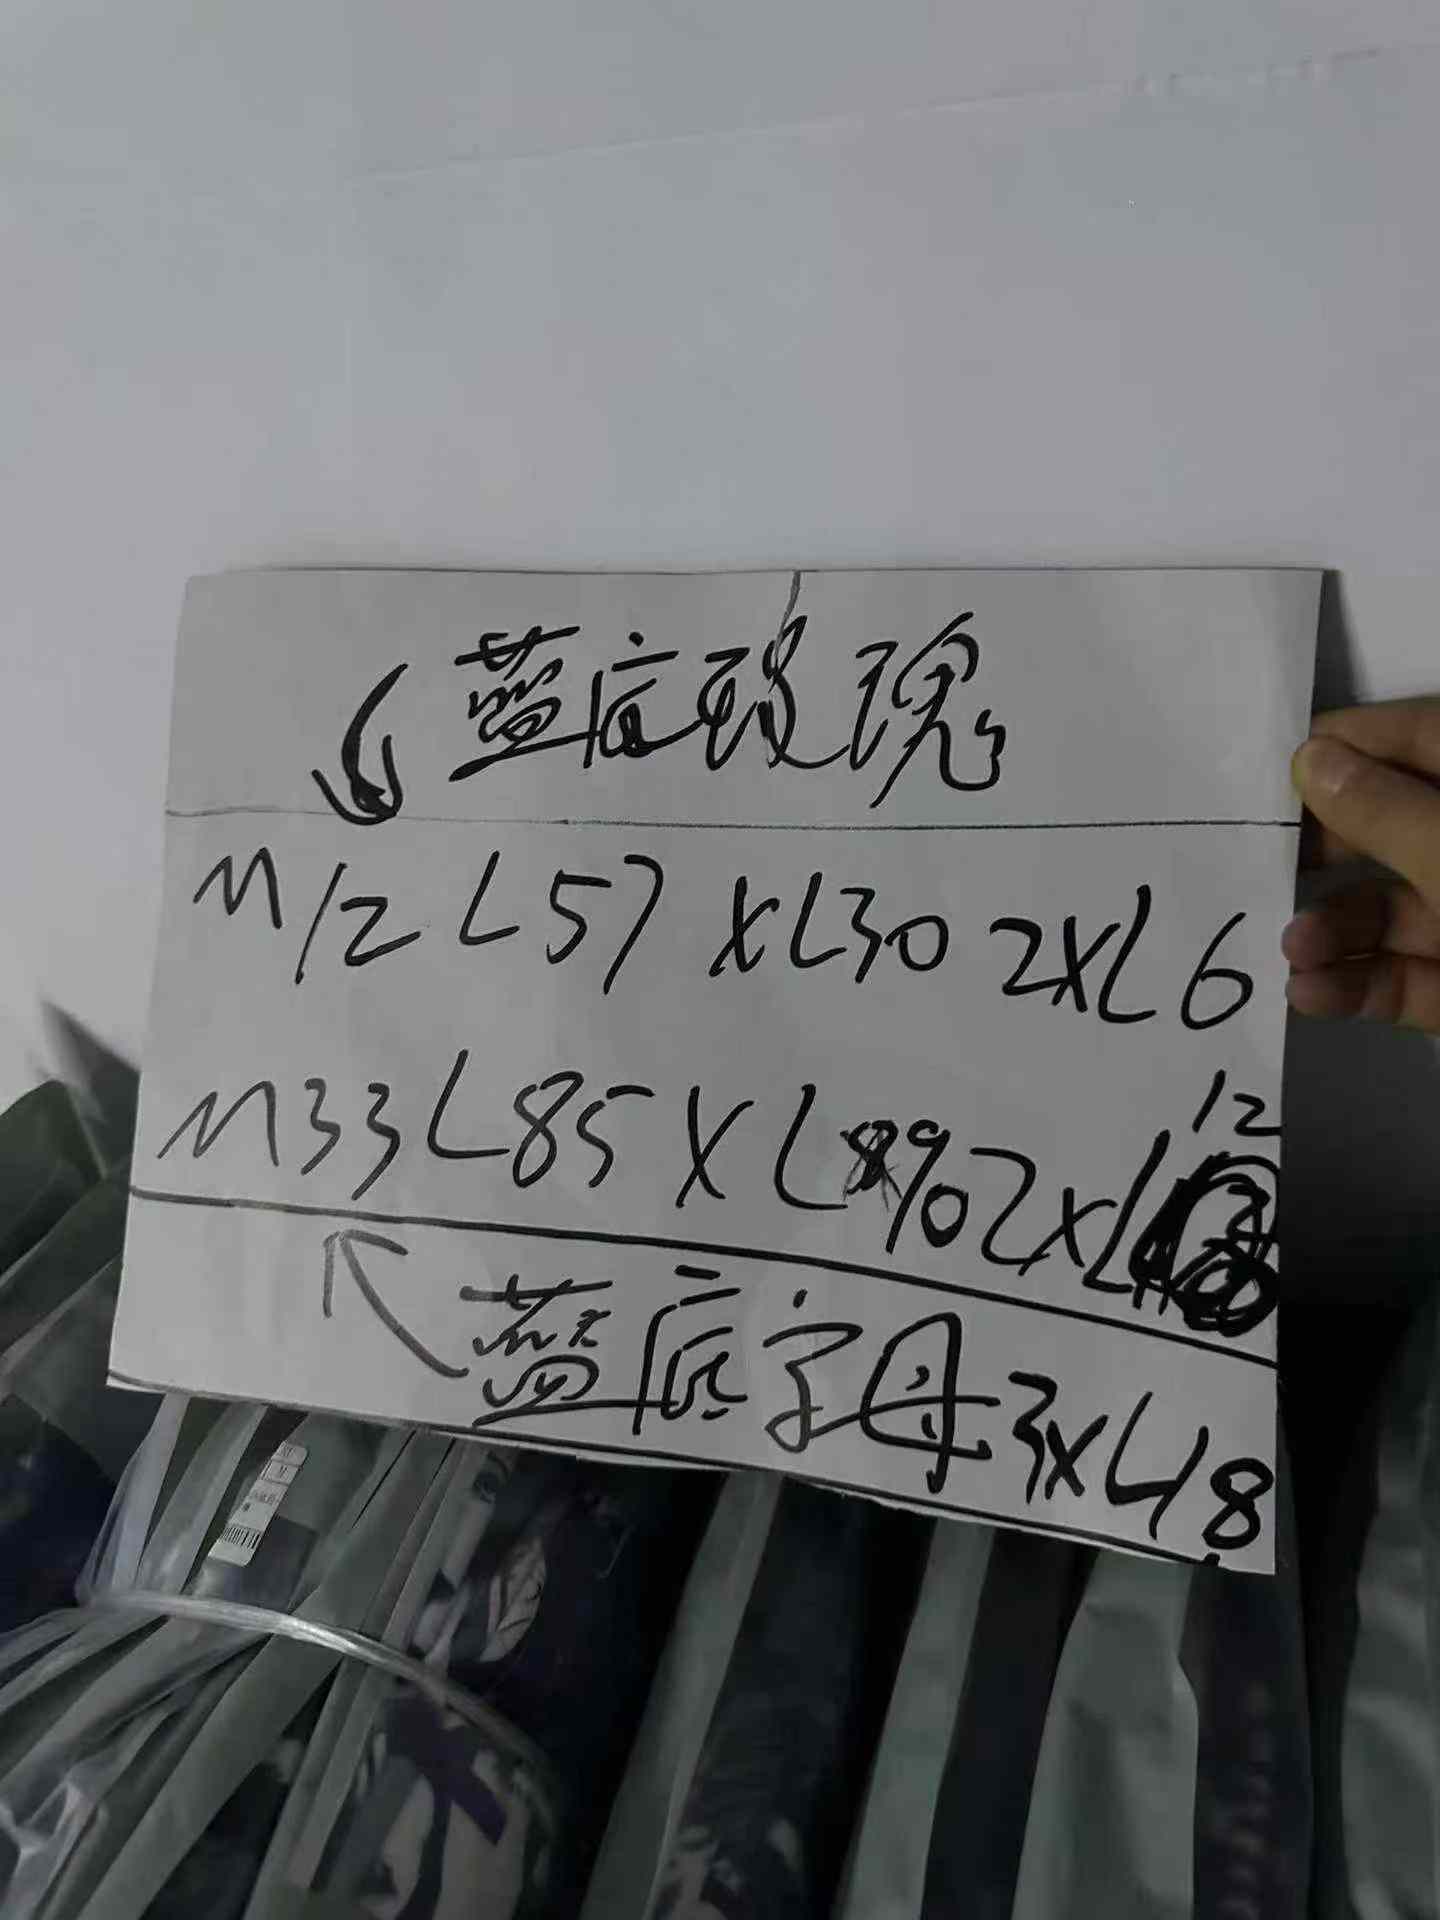 藍底玫瑰
M12 L57 XL30 2XL6
M33 L85 XL90 2XL12
藍底字母 3XL18
M